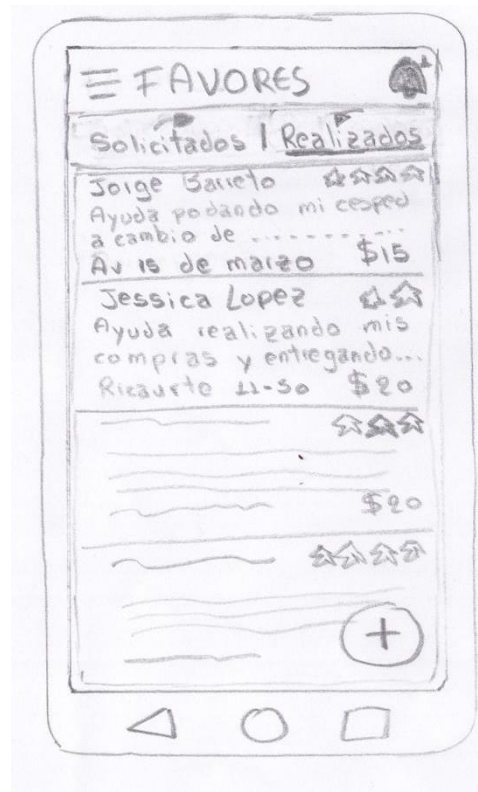 FAVORES
Solicitados | Realizados
Jorge Barreto
Ayuda podando mi cesped
a cambio de ............
Av 15 de marzo $15
Jessica Lopez
Ayuda realizando mis
compras y entregando...
Ricaurte 11-50 $20
$20
+